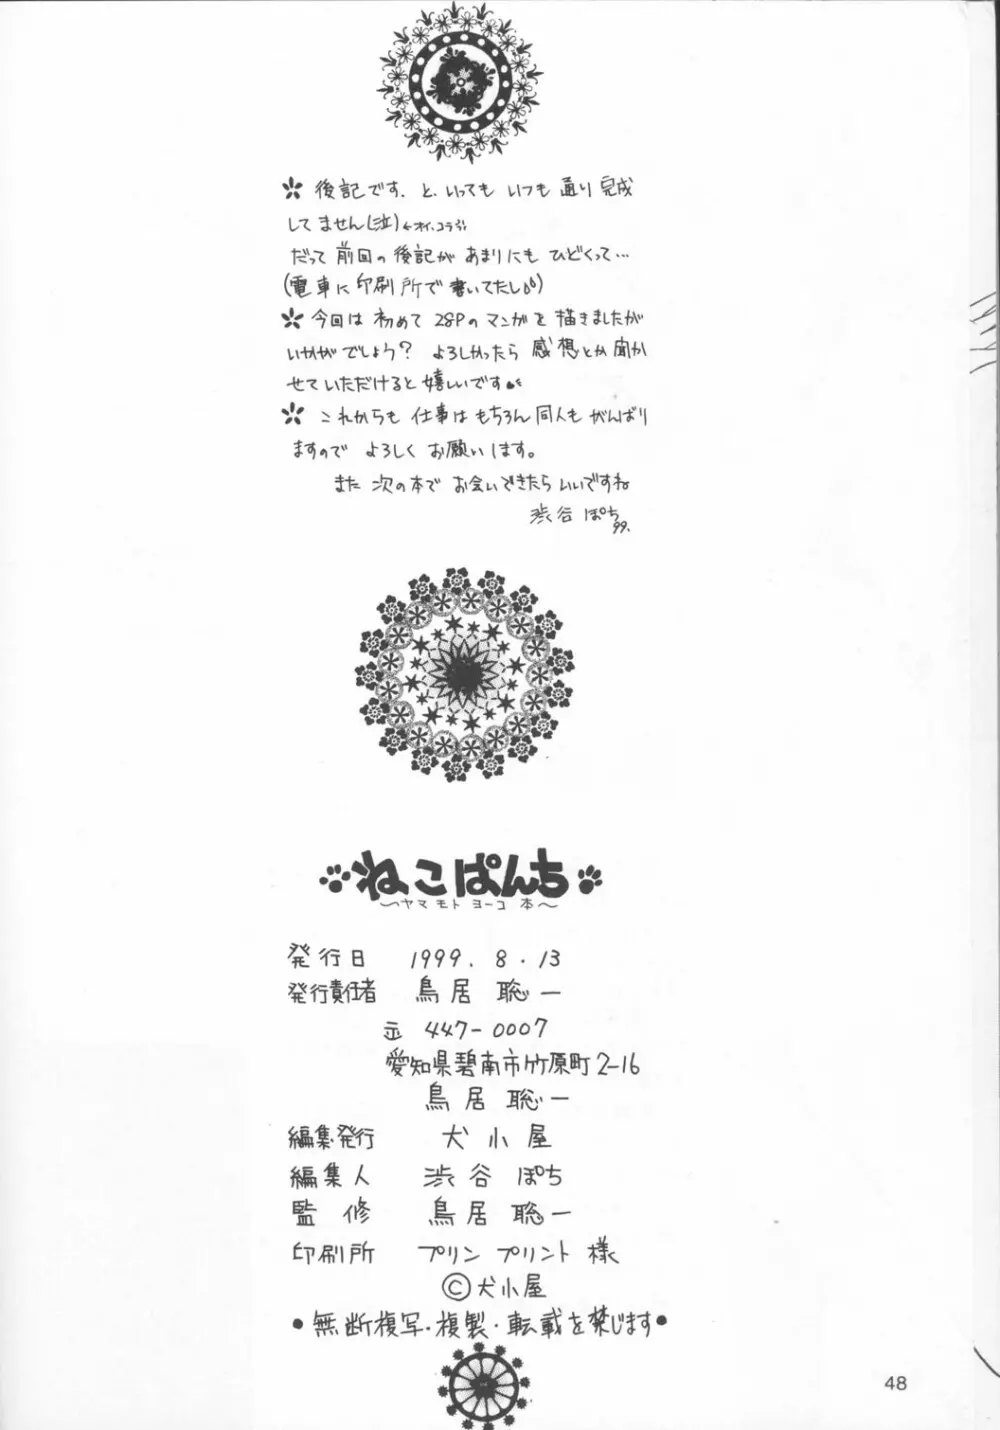 後記です. と、いっても いつも 通り 完成
してません(泣)←オイ、コラ!!
だって 前回の後記が あまりにも ひどくって…
(電車に印刷所で書いてたし)
今回は 初めて 28Pのマンガを 描きましたが
いかがでしょう? よろしかったら 感想とか聞か
せていただけると嬉しいです
これからも 仕事はもちろん同人も がんばり
ますので よろしく お願いします。
また 次の本で お会いできたら いいですね
渋谷 ぽち
99.
ねこぱんち
〜ヤマモト ヨーコ 本〜
発行日 1999. 8. 13
発行責任者 鳥居 聡一
〒 447-0007
愛知県碧南市竹原町2-16
鳥居 聡一
編集・発行 犬小屋
編集人 渋谷 ぽち
監修 鳥居 聡一
印刷所 プリン プリント 様
©犬小屋
●無断複写・複製・転載を禁じます●
48